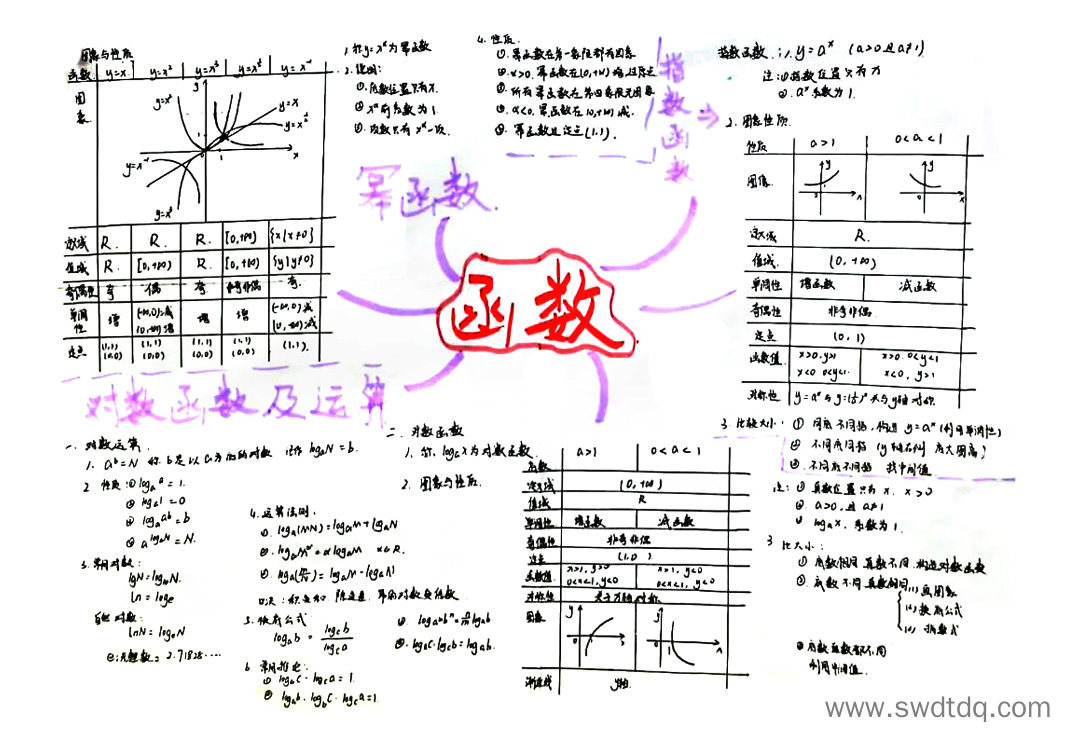 函数
幂函数
图象与性质
函数 y=x y=x² y=x³ y=x^½ y=x⁻¹
图象
y=x²
y=x
y=x^½
y=x⁻¹
y=x³
定义域 R. R. R. [0,+∞) {x|x≠0}
值域 R. [0,+∞) R. [0,+∞) {y|y≠0}
奇偶性 奇 偶 奇 非奇非偶 奇.
单调性 增 (-∞,0)减 (0,+∞)增 增 增 (-∞,0)减 (0,+∞)减
定点 (1,1) (0,0) (1,1) (0,0) (1,1) (0,0) (1,1) (0,0) (1,1).
1. 称y=xᵅ为幂函数
2. 说明:
①. 底数位置只有x.
②. xᵅ前系数为1.
③. 项数只有xᵅ一项.
4. 性质.
①. 幂函数在第一象限都有图象
②. α>0. 幂函数在[0,+∞)增,且过原点
③. 所有幂函数在第四象限无图象
④. α<0. 幂函数在(0,+∞)减.
⑤. 幂函数过定点(1,1).
指数函数
指数函数. 1. y=aˣ (a>0且a≠1)
注:①指数位置只有x
②. aˣ系数为1.
2. 图象性质.
性质 a>1 0<a<1
图像.
定义域 R.
值域. (0,+∞)
单调性 增函数 减函数
奇偶性 非奇非偶.
定点 (0,1)
函数值. x>0,y>1 x<0 0<y<1. x>0. 0<y<1 x<0, y>1
对称性 y=aˣ与y=(1/a)ˣ关于y轴对称.
3. 比较大小: ① 同底不同指,构造y=aˣ(利用单调性)
②. 不同底同指 (y轴右侧 底大图高)
③. 不同底不同指 找中间值
对数函数及运算
一. 对数运算.
1. aᵇ=N 称b是以a为底的对数 记作logₐN=b.
2. 性质:① logₐa=1.
② logₐ1=0
③ logₐaᵇ=b
④ a^logₐN=N.
3. 常用对数:
lgN=log₁₀N.
ln=logₑ
自然对数:
lnN=logₑN
e:无理数≈2.71828……
4. 运算法则.
①. logₐ(MN)=logₐM+logₐN
②. logₐMᵅ=αlogₐM α∈R.
③. logₐ(M/N)=logₐM-logₐN
5. 换底公式
logₐb = log꜀b / log꜀a
①. logₐᵐbⁿ=n/m logₐb
②. logₐc·log꜀b=logₐb.
6. 常用推论:
① logₐc·log꜀a=1.
② logₐb·log_b c·log꜀a=1.
二. 对数函数
1. 称logₐx为对数函数.
2. 图象与性质.
函数 a>1 0<a<1
定义域 (0,+∞)
值域 R
单调性 增函数 减函数
奇偶性 非奇非偶
定点 (1,0)
函数值. x>1, y>0 0<x<1, y<0 x>1, y<0
对称性
图象
渐近线 y轴.
注:① 真数位置只为x. x>0
②. a>0,且a≠1
③ logₐx. 系数为1.
3 比大小:
① 底数相同 真数不同. 构造对数函数
②. 底数不同 真数相同 (1) 画图象
(2) 换底公式
(3). 指数式
③ 底数真数都不同
利用中间值.
www.swdtdq.com